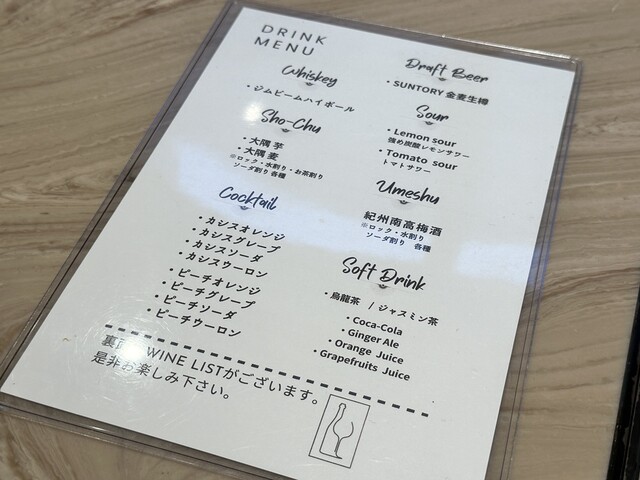 DRINK
MENU
Whiskey
・ジムビームハイボール
Sho-Chu
・大隅 芋
・大隅 麦
※ロック・水割り・お茶割り
ソーダ割り 各種
Cocktail
・カシスオレンジ
・カシスグレープ
・カシスソーダ
・カシスウーロン
・ピーチオレンジ
・ピーチグレープ
・ピーチソーダ
・ピーチウーロン
Draft Beer
・SUNTORY 金麦生樽
Sour
・Lemon sour
強め炭酸レモンサワー
・Tomato sour
トマトサワー
Umeshu
紀州南高梅酒
※ロック・水割り
ソーダ割り 各種
Soft Drink
・烏龍茶 / ジャスミン茶
・Coca-Cola
・Ginger Ale
・Orange Juice
・Grapefruits Juice
裏 WINE LISTがございます。
是非お楽しみ下さい。